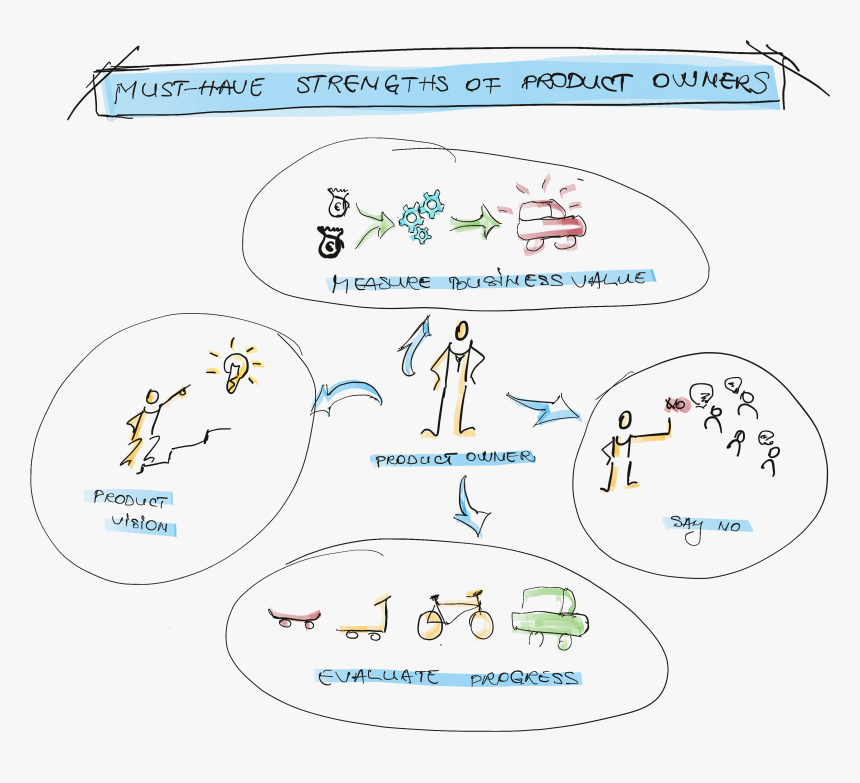 MUST-HAVE STRENGTHS OF PRODUCT OWNERS
€
€
MEASURE BUSINESS VALUE
NO
PRODUCT OWNER
PRODUCT
VISION
SAY NO
EVALUATE PROGRESS